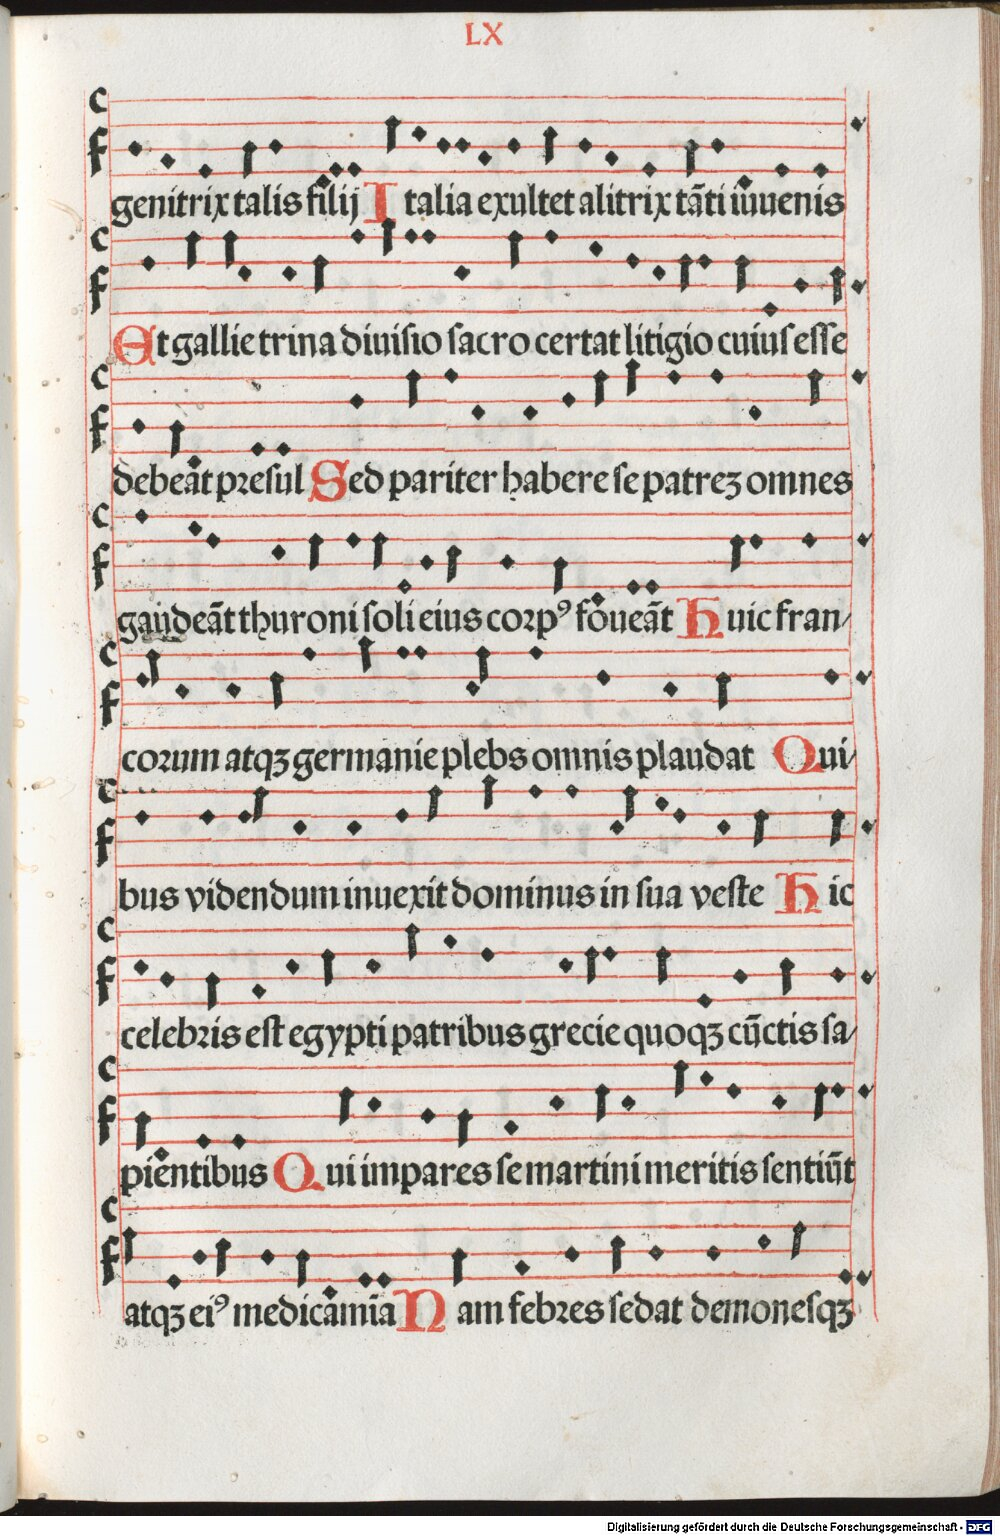 LX
genitrix talis filij Italia exultet alitrix tāti iuuenis
Et gallie trina diuisio sacro certat litigio cuius esse
debeāt presul Sed pariter habere se patreꝫ omnes
gaudeāt thuroni soli eius corpꝰ foueāt Huic fran/
corum atqꝫ germanie plebs omnis plaudat Qui/
bus videndum inuexit dominus in sua veste Hic
celebris est egypti patribus grecie quoqꝫ cūctis sa/
pientibus Qui impares se martini meritis sentiūt
atqꝫ eiꝰ medicamīa Nam febres sedat demonesqꝫ
Digitalisierung gefördert durch die Deutsche Forschungsgemeinschaft - DFG